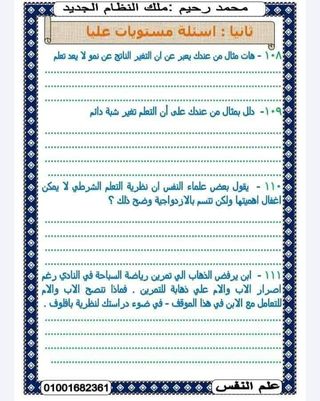 محمد رحيم :ملك النظام الجديد
ثانيا : اسئلة مستويات عليا
١٠٨ - هات مثال من عندك يعبر عن ان التغير الناتج عن نمو لا يعد تعلم
١٠٩- دلل بمثال من عندك على أن التعلم تغير شبة دائم
١١٠ - يقول بعض علماء النفس ان نظرية التعلم الشرطي لا يمكن
اغفال اهميتها ولكن تتسم بالازدواجية وضح ذلك ؟
١١١ - ابن يرفض الذهاب الي تمرين رياضة السباحة في النادي رغم
اصرار الاب والام علي ذهابة للتمرين . فماذا تنصح الاب والام
للتعامل مع الابن في هذا الموقف - في ضوء دراستك لنظرية بافلوف .
علم النفس
01001682361